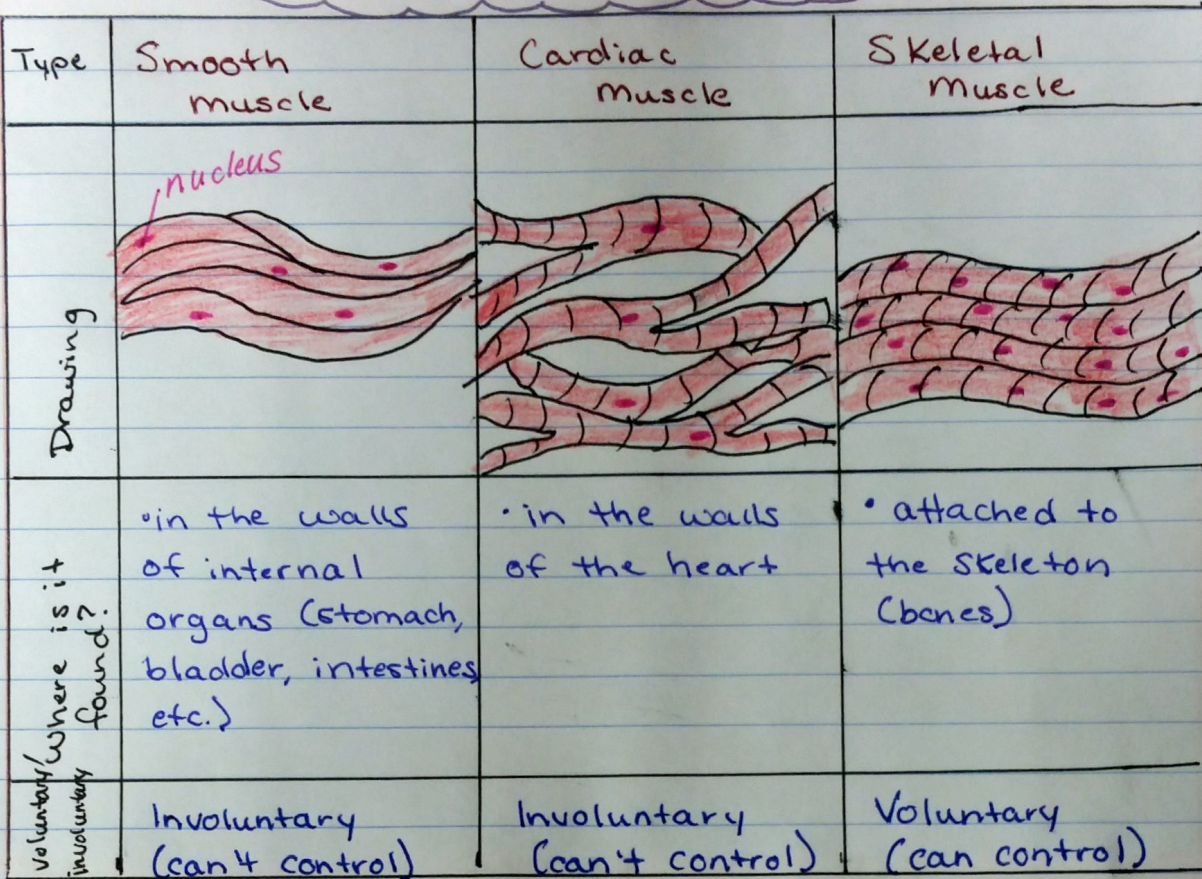 Type
Smooth
muscle
Cardiac
muscle
Skeletal
muscle
Drawing
nucleus
Where is it
found?
•in the walls
of internal
organs (stomach,
bladder, intestines
etc.)
• in the walls
of the heart
• attached to
the skeleton
(bones)
Voluntary/
involuntary
Involuntary
(can't control)
Involuntary
(can't control)
Voluntary
(can control)